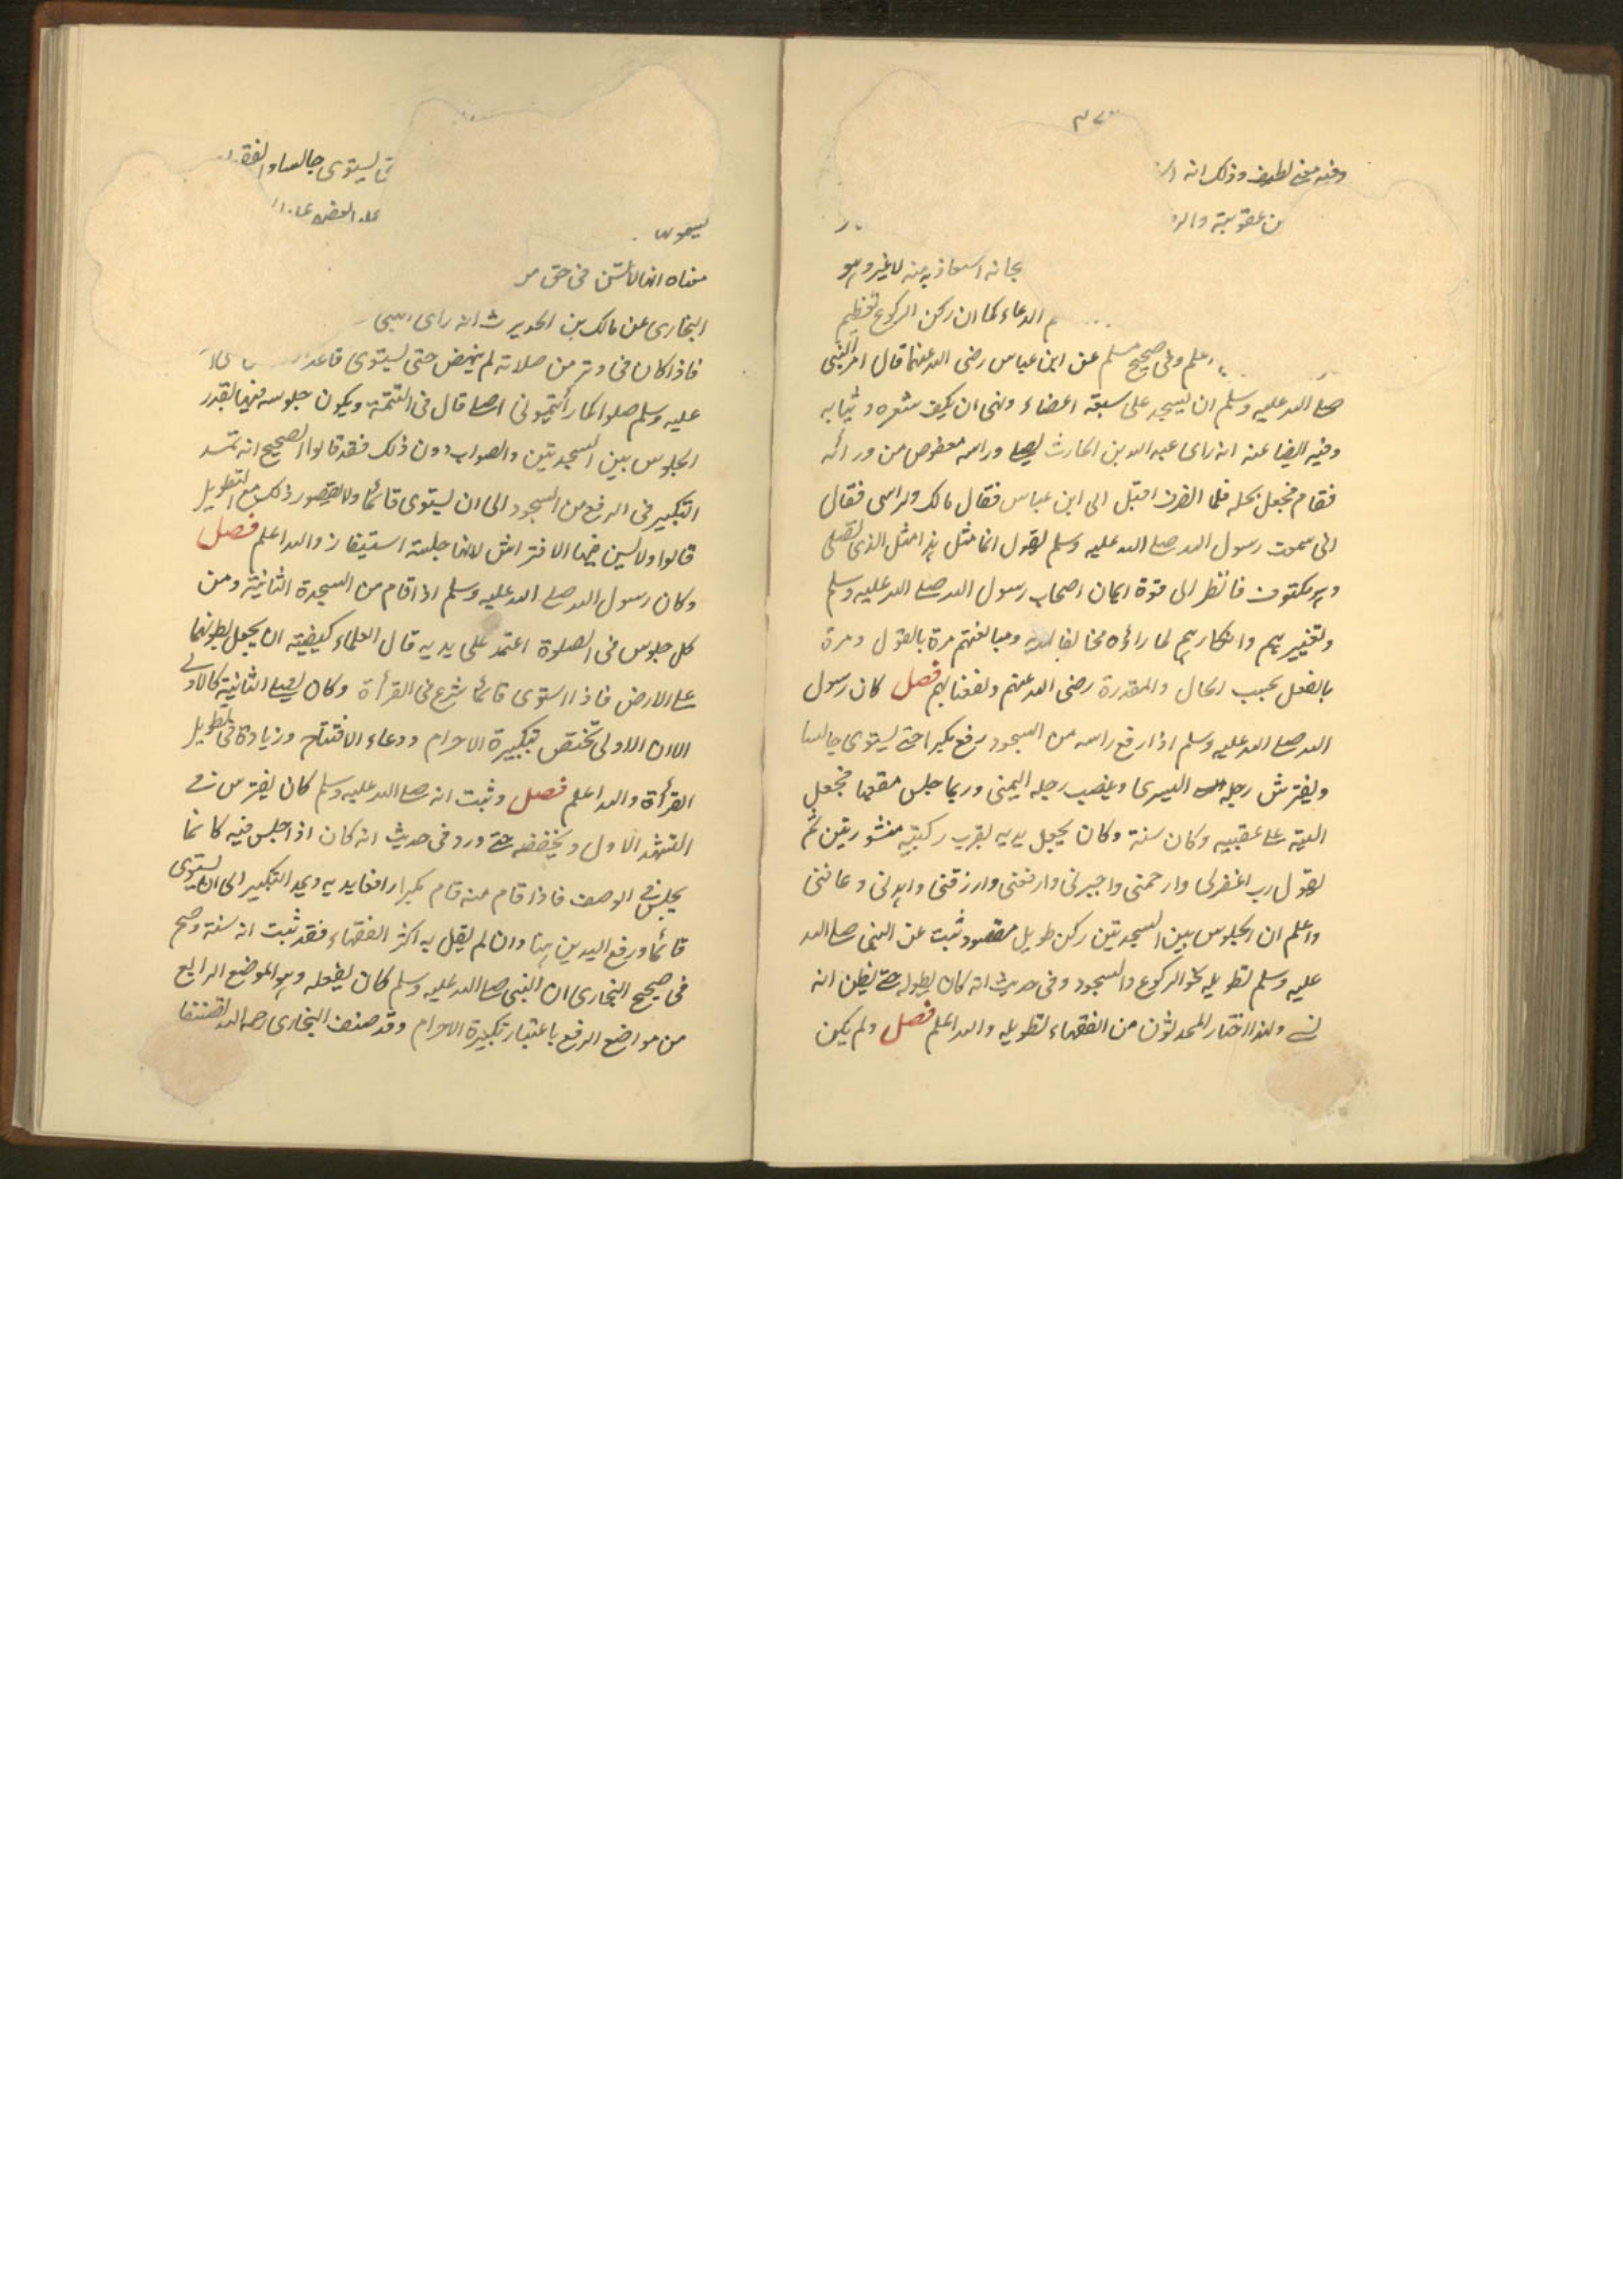 ٣٧٣
وفيه معنى لطيف وذلك انه
من عقوبته
استعاذ به منه لا غير وهو
الدعاء كما ان ركن الركوع تعظيم
اعلم وفى صحيح مسلم عن ابن عباس رضى الله عنهما قال امر النبى
صلى الله عليه وسلم ان يسجد على سبعة اعضاء ونهى ان يكف شعره وثيابه
وفيه ايضا عنه انه راى عبد الله بن الحارث يصلى وراسه معقوص من ورائه
فقام فجعل يحله فلما انصرف اقبل الى ابن عباس فقال مالك ولراسى فقال
انى سمعت رسول الله صلى الله عليه وسلم يقول انما مثل هذا مثل الذى يصلى
وهو مكتوف فانظر الى قوة ايمان اصحاب رسول الله صلى الله عليه وسلم
وتغييرهم وانكارهم لما راؤه مخالفا ومبالغتهم مرة بالقول ومرة
بالفعل بحسب الحال والمقدرة رضى الله عنهم ونفعنا بهم فصل كان رسول
الله صلى الله عليه وسلم اذا رفع راسه من السجود رفع مكبرا حتى يستوى جالسا
ويفترش رجله اليسرى وينصب رجله اليمنى وربما جلس مقعيا فجعل
اليتيه على عقبيه وكان سنة وكان يجعل يديه بقرب ركبتيه منشورتين ثم
يقول رب اغفرلى وارحمنى واجبرنى وارفعنى وارزقنى واهدنى وعافنى
واعلم ان الجلوس بين السجدتين ركن طويل مقصود ثبت عن النبى صلى الله
عليه وسلم تطويله نحو الركوع والسجود وفى حديث انه كان يطوله حتى يظن انه
نسى ولهذا اختار المحدثون من الفقهاء تطويله والله اعلم فصل ولم يكن
يستوى جالسا
معناه انها لا تسن فى حق
البخارى عن مالك بن الحويرث انه راى النبى
فاذا كان فى وتر من صلاته لم ينهض حتى يستوى قاعدا
عليه وسلم صلوا كما رأيتمونى اصلى قال فى التتمة ويكون جلوسه فيها بقدر
الجلوس بين السجدتين والصواب دون ذلك فقد قالوا الصحيح انه تمد
التكبير فى الرفع من السجود الى ان يستوى قائما ولا يتصور ذلك مع التطويل
قالوا وليس فيها الافتراش لانها جلسة استيفاز والله اعلم فصل
وكان رسول الله صلى الله عليه وسلم اذا قام من السجدة الثانية ومن
كل جلوس فى الصلوة اعتمد على يديه قال العلماء كيفيته ان يجعل بطونهما
على الارض فاذا استوى قائما شرع فى القرأة وكان يصلى الثانية كالاولى
الا ان الاولى تختص بتكبيرة الاحرام ودعاء الافتتاح وزيادة فى تطويل
القرأة والله اعلم فصل وثبت انه صلى الله عليه وسلم كان يفترس فى
التشهد الاول ويخففه حتى ورد فى حديث انه كان اذا جلس فيه كانما
يجلس فى الرصف فاذا قام منه قام مكبرا رافعا يديه ويمد التكبير الى ان يستوى
قائما ورفع اليدين هنا وان لم يقل به اكثر الفقهاء فقد ثبت انه سنة وصح
فى صحيح البخارى ان النبى صلى الله عليه وسلم كان يفعله وهو الموضع الرابع
من مواضع الرفع باعتبار تكبيرة الاحرام وقد صنف البخارى رحمه الله تصنيفا